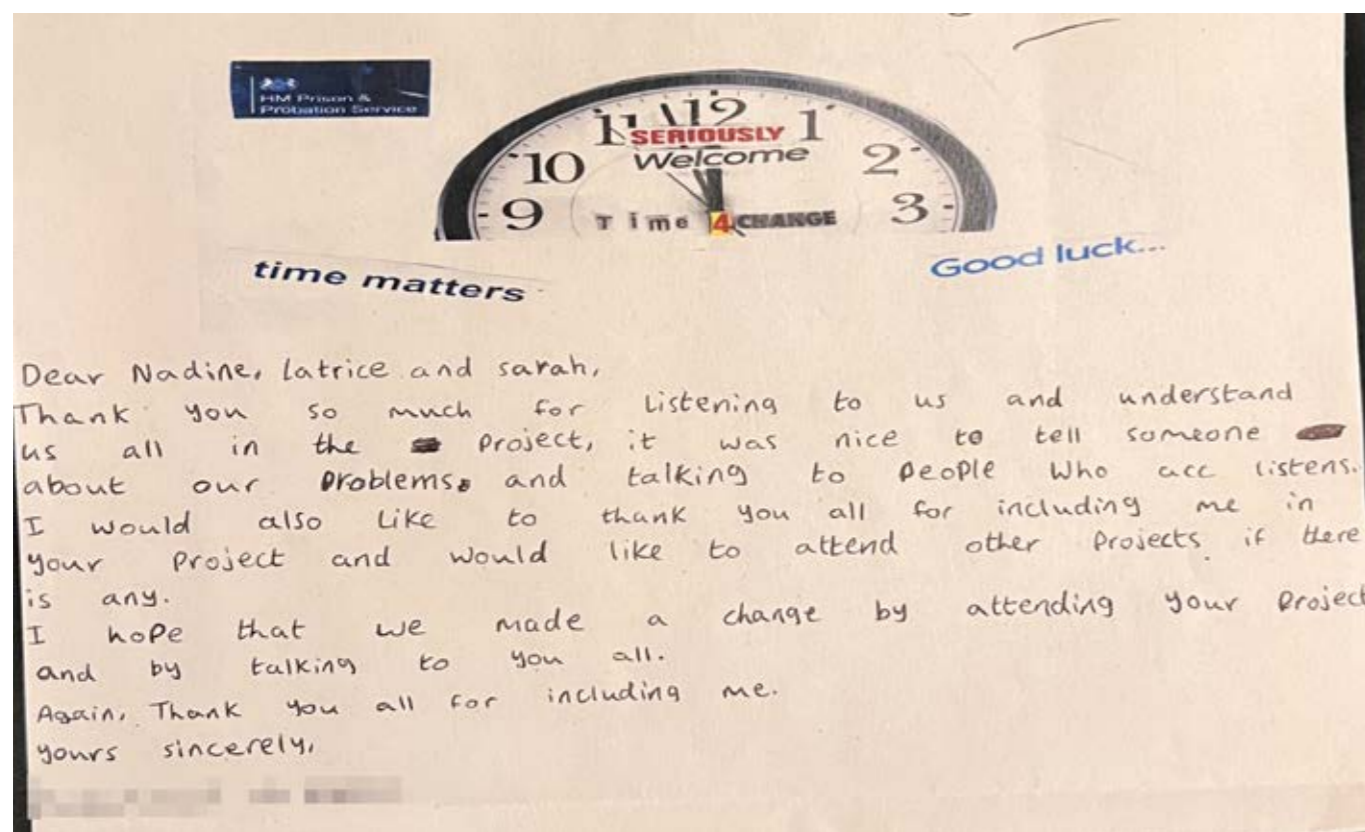 HM Prison &
Probation Service
11 12 1
SERIOUSLY
Welcome
10 2
9 3
Time 4 CHANGE
time matters
Good luck...
Dear Nadine, Latrice and sarah,
Thank you so much for listening to us and understand
us all in the Project, it was nice to tell someone
about our problems and talking to people who acc listens.
I would also like to thank you all for including me in
your project and would like to attend other projects if there
is any.
I hope that we made a change by attending your project
and by talking to you all.
Again, Thank you all for including me.
yours sincerely,